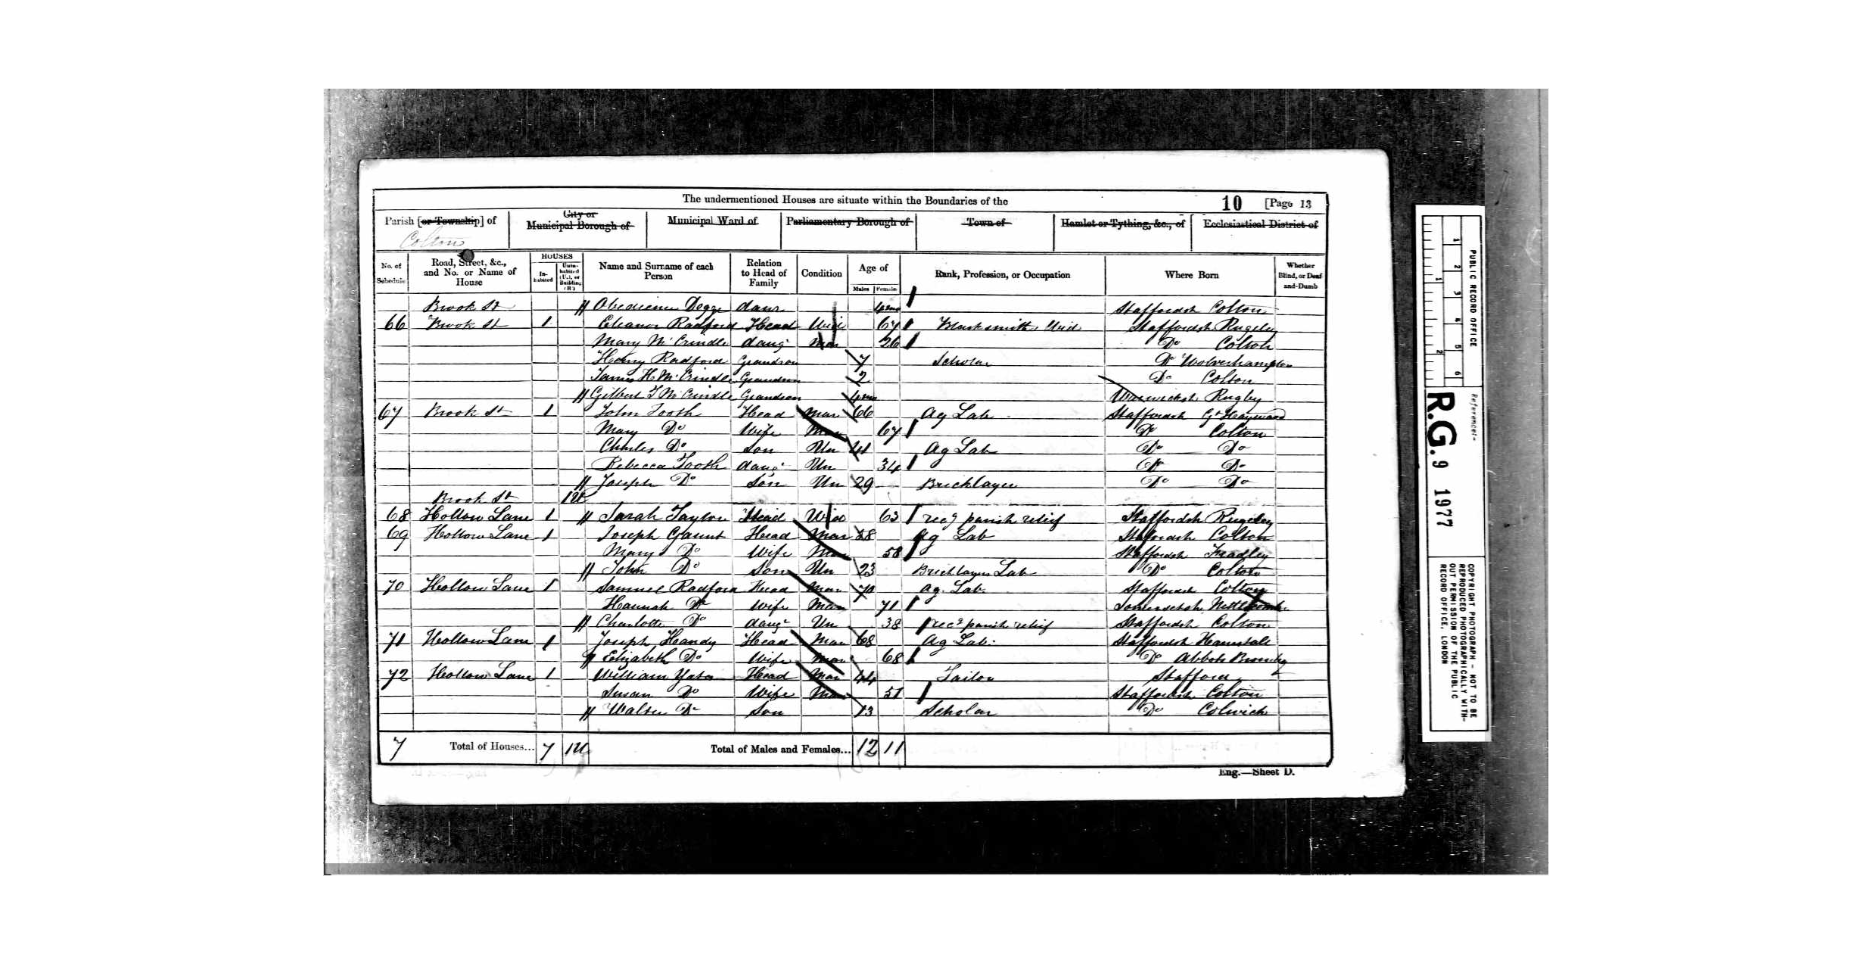 The undermentioned Houses are situate within the Boundaries of the
10 [Page 13
Parish [or Township] of
City or Municipal Borough of
Municipal Ward of
Parliamentary Borough of
Town of
Hamlet or Tything, &c., of
Ecclesiastical District of
Colton
No. of Schedule
Road, Street, &c., and No. or Name of House
HOUSES
Inhabited
Uninhabited (U.), or Building (B.)
Name and Surname of each Person
Relation to Head of Family
Condition
Age of
Males
Females
Rank, Profession, or Occupation
Where Born
Whether Blind, or Deaf-and-Dumb
Brook St Degge daur Staffordsh Colton
66 Brook St 1 Eleanor Radford Head Wid 67 Blacksmith's Wid Staffordsh Rugeley
Mary McCrindle daugr Mar 26 Do Colton
Henry Radford Grandson 7 Scholar Do Wolverhampton
James H McCrindle Grandson 2 Do Colton
Gilbert McCrindle Grandson Warwicksh Rugby
67 Brook St 1 John Tooth Head Mar 66 Ag Lab Staffordsh Gt Haywood
Mary Do Wife Mar 67 Do Colton
Charles Do Son Un 41 Ag Lab Do Do
Rebecca Tooth daugr Un 34 Do Do
Joseph Do Son Un 29 Bricklayer Do Do
Brook St 1U
68 Hollow Lane 1 Sarah Taylor Head Wid 63 recg parish relief Staffordsh Rugeley
69 Hollow Lane 1 Joseph Gaunt Head Mar 58 Ag Lab Staffordsh Colton
Mary Do Wife Mar 58 Staffordsh Fradley
John Do Son Un 23 Bricklayers Lab Do Colton
70 Hollow Lane 1 Samuel Radford Head Mar 70 Ag. Lab. Staffordsh Colton
Hannah Do Wife Mar 71 Somersetsh
Charlotte Do daugr Un 38 recg parish relief Staffordsh Colton
71 Hollow Lane 1 Joseph Handy Head Mar 68 Ag Lab. Staffordsh
Elizabeth Do Wife Mar 68 Do Abbots Bromley
72 Hollow Lane 1 William Yates Head Mar 44 Tailor Stafford
Susan Do Wife Mar 51 Staffordsh Colton
Walter Do Son 13 Scholar Do Colwich
7 Total of Houses... 7 1U Total of Males and Females... 12 11
Eng.—Sheet D.
PUBLIC RECORD OFFICE
Reference:-
R.G. 9 1977
COPYRIGHT PHOTOGRAPH - NOT TO BE REPRODUCED PHOTOGRAPHICALLY WITHOUT PERMISSION OF THE PUBLIC RECORD OFFICE, LONDON